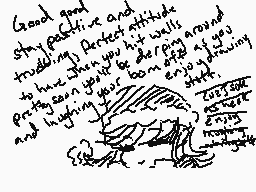 Good good
stay positive and
trudging. Perfect attitude
to have when you hit walls
pretty soon you'll be derping around
and laughing your bum off as you
enjoy drawing
stuff.
enjoy